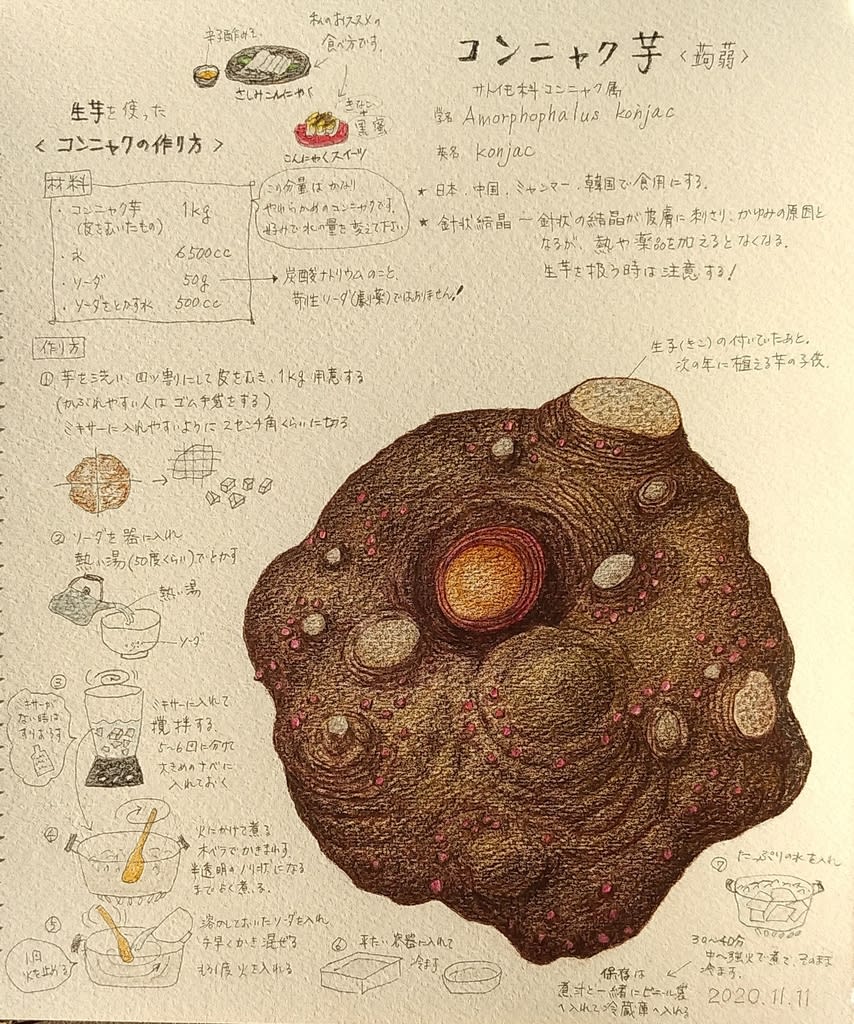 コンニャク芋〈蒟蒻〉
サトイモ科コンニャク属
学名 Amorphophalus konjac
英名 konjac
★ 日本、中国、ミャンマー、韓国で食用にする。
★ 針状結晶 ー 針状の結晶が皮膚に刺さり、かゆみの原因と
なるが、熱や薬品を加えるとなくなる。
生芋を扱う時は注意する!
私のおススメの
食べ方です。
辛子酢みそ
さしみこんにゃく
きなこ
+
黒蜜
こんにゃくスイーツ
生芋を使った
〈コンニャクの作り方〉
材料
・コンニャク芋 1kg
(皮をむいたもの)
・水 6500cc
・ソーダ 50g
・ソーダをとかす水 500cc
この分量はかなり
やわらかめのコンニャクです。
好みで水の量を変えて下さい
炭酸ナトリウムのこと、
苛性ソーダ(劇薬)ではありません!
作り方
① 芋を洗い、四ツ割りにして皮をむき、1kg用意する
(かぶれやすい人はゴム手袋をする)
ミキサーに入れやすいように2センチ角くらいに切る
② ソーダを器に入れ
熱い湯(50度くらい)でとかす
熱い湯
ソーダ
③
ミキサーに入れて
撹拌する。
5〜6回に分けて
大きめのナベに
入れておく
ミキサーが
ない時は
すりおろす
④
火にかけて煮る
木ベラでかきまわす。
半透明のノリ状になる
までよく煮る。
⑤
溶かしておいたソーダを入れ
手早くかき混ぜる
もう1度火を入れる
1回
火を止める
⑥ 平たい容器に入れて
冷ます
⑦ たっぷりの水を入れ
30〜40分
中〜強火で煮て、そのまま
冷ます。
保存は
煮汁と一緒にビニール袋
へ入れて冷蔵庫へ入れる
生子(きこ)の付いていたあと。
次の年に植える芋の子供。
2020.11.11